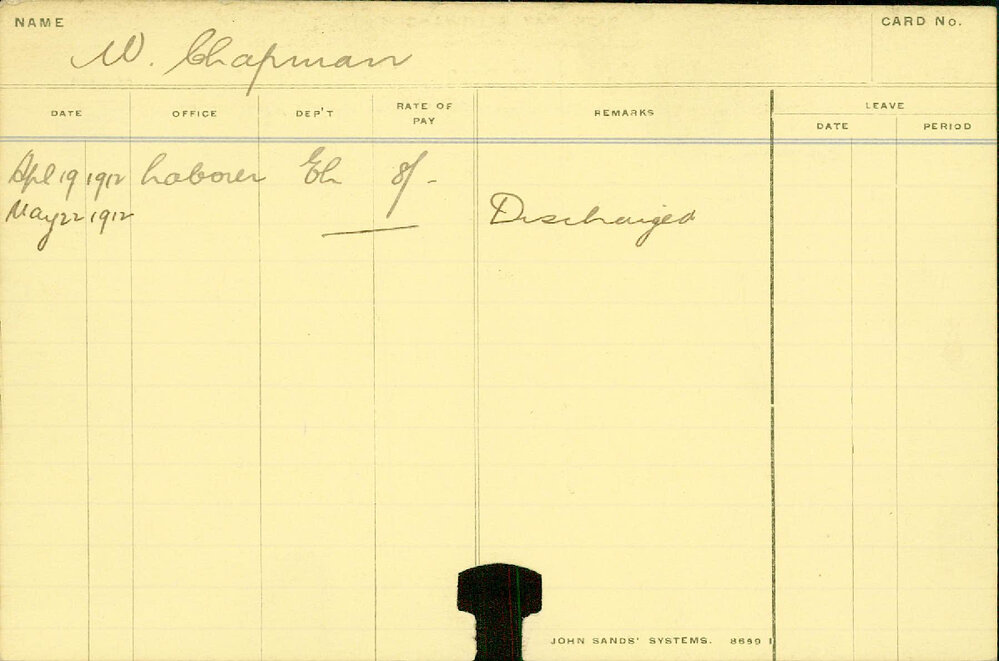 NAME
CARD No.
W. Chapman
DATE OFFICE DEP'T RATE OF PAY REMARKS LEAVE
DATE PERIOD
Apl 19 1912 Laborer Eh 8/-
May 22 1912 Discharged
JOHN SANDS' SYSTEMS. 8699